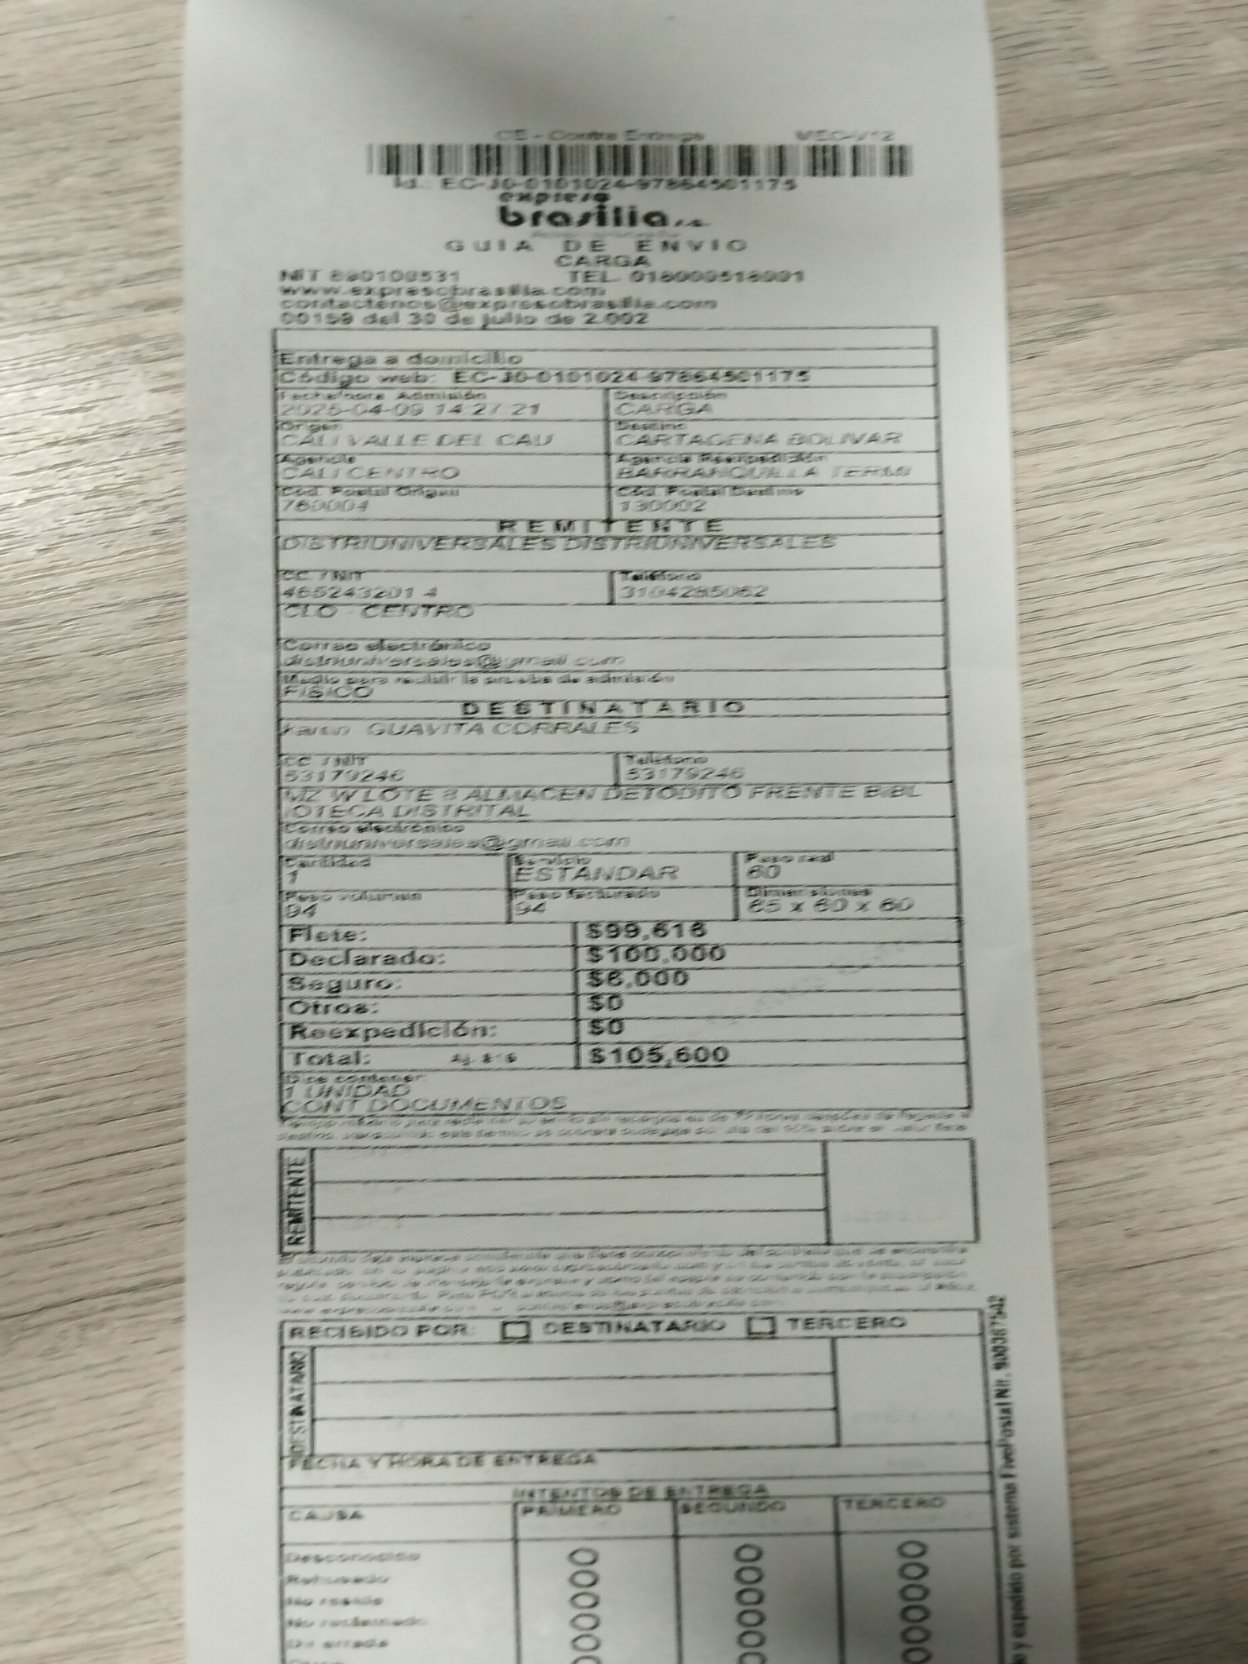 CE - Contra Entrega
Id.: EC-J0-0101024-97864501175
expreso
brasilia s.a.
GUIA DE ENVIO
CARGA
NIT 890100531 TEL. 018000518001
www.expresobrasilia.com
contactenos@expresobrasilia.com
00159 del 30 de julio de 2.002
Entrega a domicilio
Código web: EC-J0-0101024-97864501175
Fecha/hora Admisión Descripción
2025-04-09 14:27:21 CARGA
Origen Destino
CALI VALLE DEL CAU CARTAGENA BOLIVAR
Agencia Agencia Reexpedición
CALI CENTRO BARRANQUILLA TERMI
Cód. Postal Origen Cód. Postal Destino
760004 130002
REMITENTE
DISTRIUNIVERSALES DISTRIUNIVERSALES
CC / NIT Teléfono
465243201 4 3104285062
CLO - CENTRO
Correo electrónico
distriuniversales@gmail.com
Medio para recibir la prueba de admisión
FISICO
DESTINATARIO
karen GUAVITA CORRALES
CC / NIT Teléfono
53179246 53179246
MZ W LOTE 8 ALMACEN DETODITO FRENTE BIBL
IOTECA DISTRITAL
Correo electrónico
distriuniversales@gmail.com
Cantidad Servicio Peso real
1 ESTANDAR 60
Peso volumen Peso facturado Dimensiones
94 94 65 x 60 x 60
Flete: $99,616
Declarado: $100,000
Seguro: $6,000
Otros: $0
Reexpedición: $0
Total: $105,600
Dice contener:
1 UNIDAD
CONT DOCUMENTOS
REMITENTE
RECIBIDO POR: DESTINATARIO TERCERO
DESTINATARIO
FECHA Y HORA DE ENTREGA
INTENTOS DE ENTREGA
CAUSA PRIMERO SEGUNDO TERCERO
Desconocido
Rehusado
No reside
No reclamado
Dir errada
o y expedido por sistema FivePostal Nit. 900367542